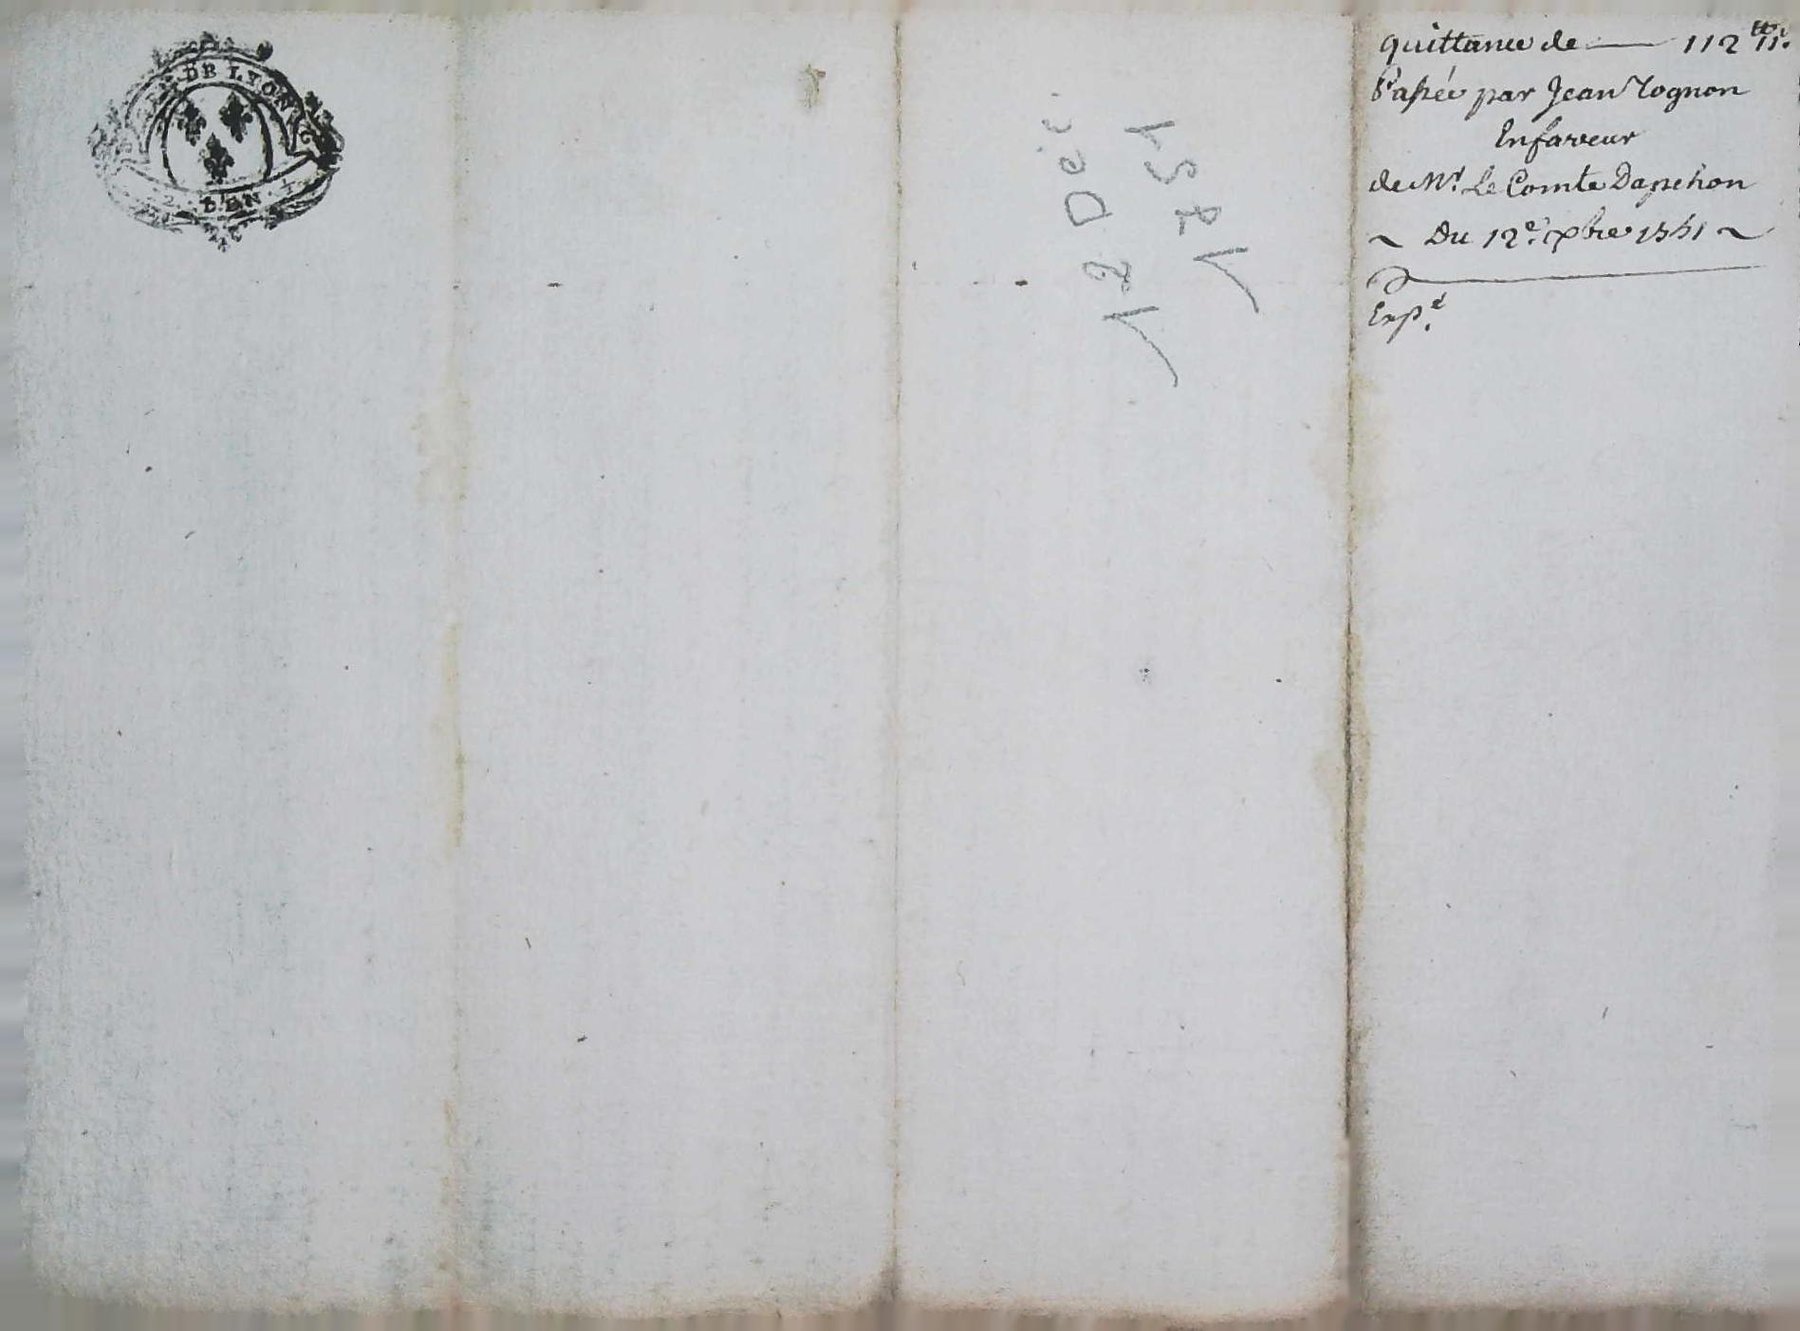 DE LYON
2. S. DEN.
12 Dec
1751
quittance de — 112 ᵗᵗ 11ˢ
Passée par Jean Tognon
En faveur
de Mr. Le Comte Dapchon
~ Du 12e. xbre 1751 ~
Expé.